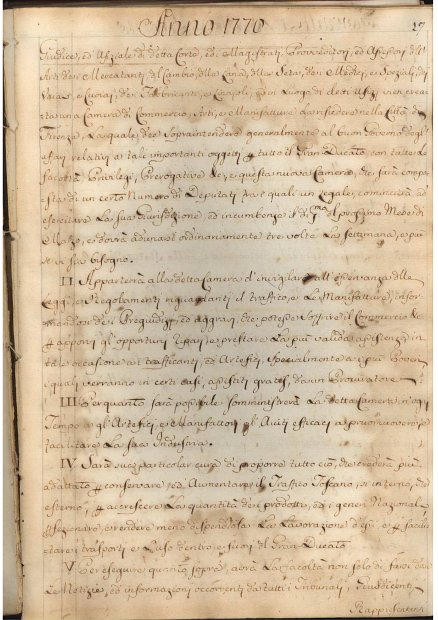 Anno 1770
17
Giudice, ed Ufiziale di detta Corte, ed i Magistrati, Provveditori, ed Assessori dell'
Arti dei Mercatanti del Cambio, della Lana, della Seta, dei Medici, e Speziali, di
Vaiai, e Cuoiai, dei Fabbricanti, e Linaioli, ed in Luogo di detti Ufizi vien creata
una Camera di Commercio, Arti, e Manifatture da risiedere nella Città di
Firenze, La quale dee Sopraintendere generalmente al buon Governo degl'
affari relativi a tali importanti oggetti tutto il Gran Ducato con tutte le
facoltà Privilegi, Prerogative questa nuova Camera, che sarà composta
di un certo Numero di Deputati fra i quali un Legale, comincerà ad
esercitare La sua Giurisdizione, ed incumbenze il dì p.mo del prossimo Mese di
Marzo, e dovrà adunarsi ordinariamente tre volte La settimana, e più
se vi sia bisogno.
II Apparterrà alla detta Camera d'invigilare all'osservanza delle
Leggi, e Regolamenti riguardanti il traffico, e Le Manifatture, informandosi
dei Pregiudizj, ed aggravj che potesse Soffrire il Commercio
apporvi gl'opportuni Ripari, e prestare La più valida assistenza in
tutte le occasione ai trafficanti, ed Artefici, specialmente ai più Poveri,
i quali verranno in certi casi, assistiti gratis, da un Procuratore
III Per quanto sarà possibile somministrerà La detta Camera in ogni
Tempo agl'Artefici, e Manifattori gl'Aiuti efficaci a promuovere, e
facilitare La loro Industria.
IV Sarà sua particolar cura di proporre tutto ciò, che crederà più
adattato conservare ed Aumentare il Traffico Toscano, sì interno, che
esterno, accrescere La quantità dei prodotti, ed i generi Nazionali
e rendere meno dispendiosa La Lavorazione d'essi, e facilitare
i trasporti e L'uso dentro, e fuori del Gran Ducato
V Per eseguire quanto sopra, avrà La facoltà non solo di farsi dare
Le Notizie, ed informazioni occorrenti da tutti i Tribunali, Giusdicenti
Rappresentanti